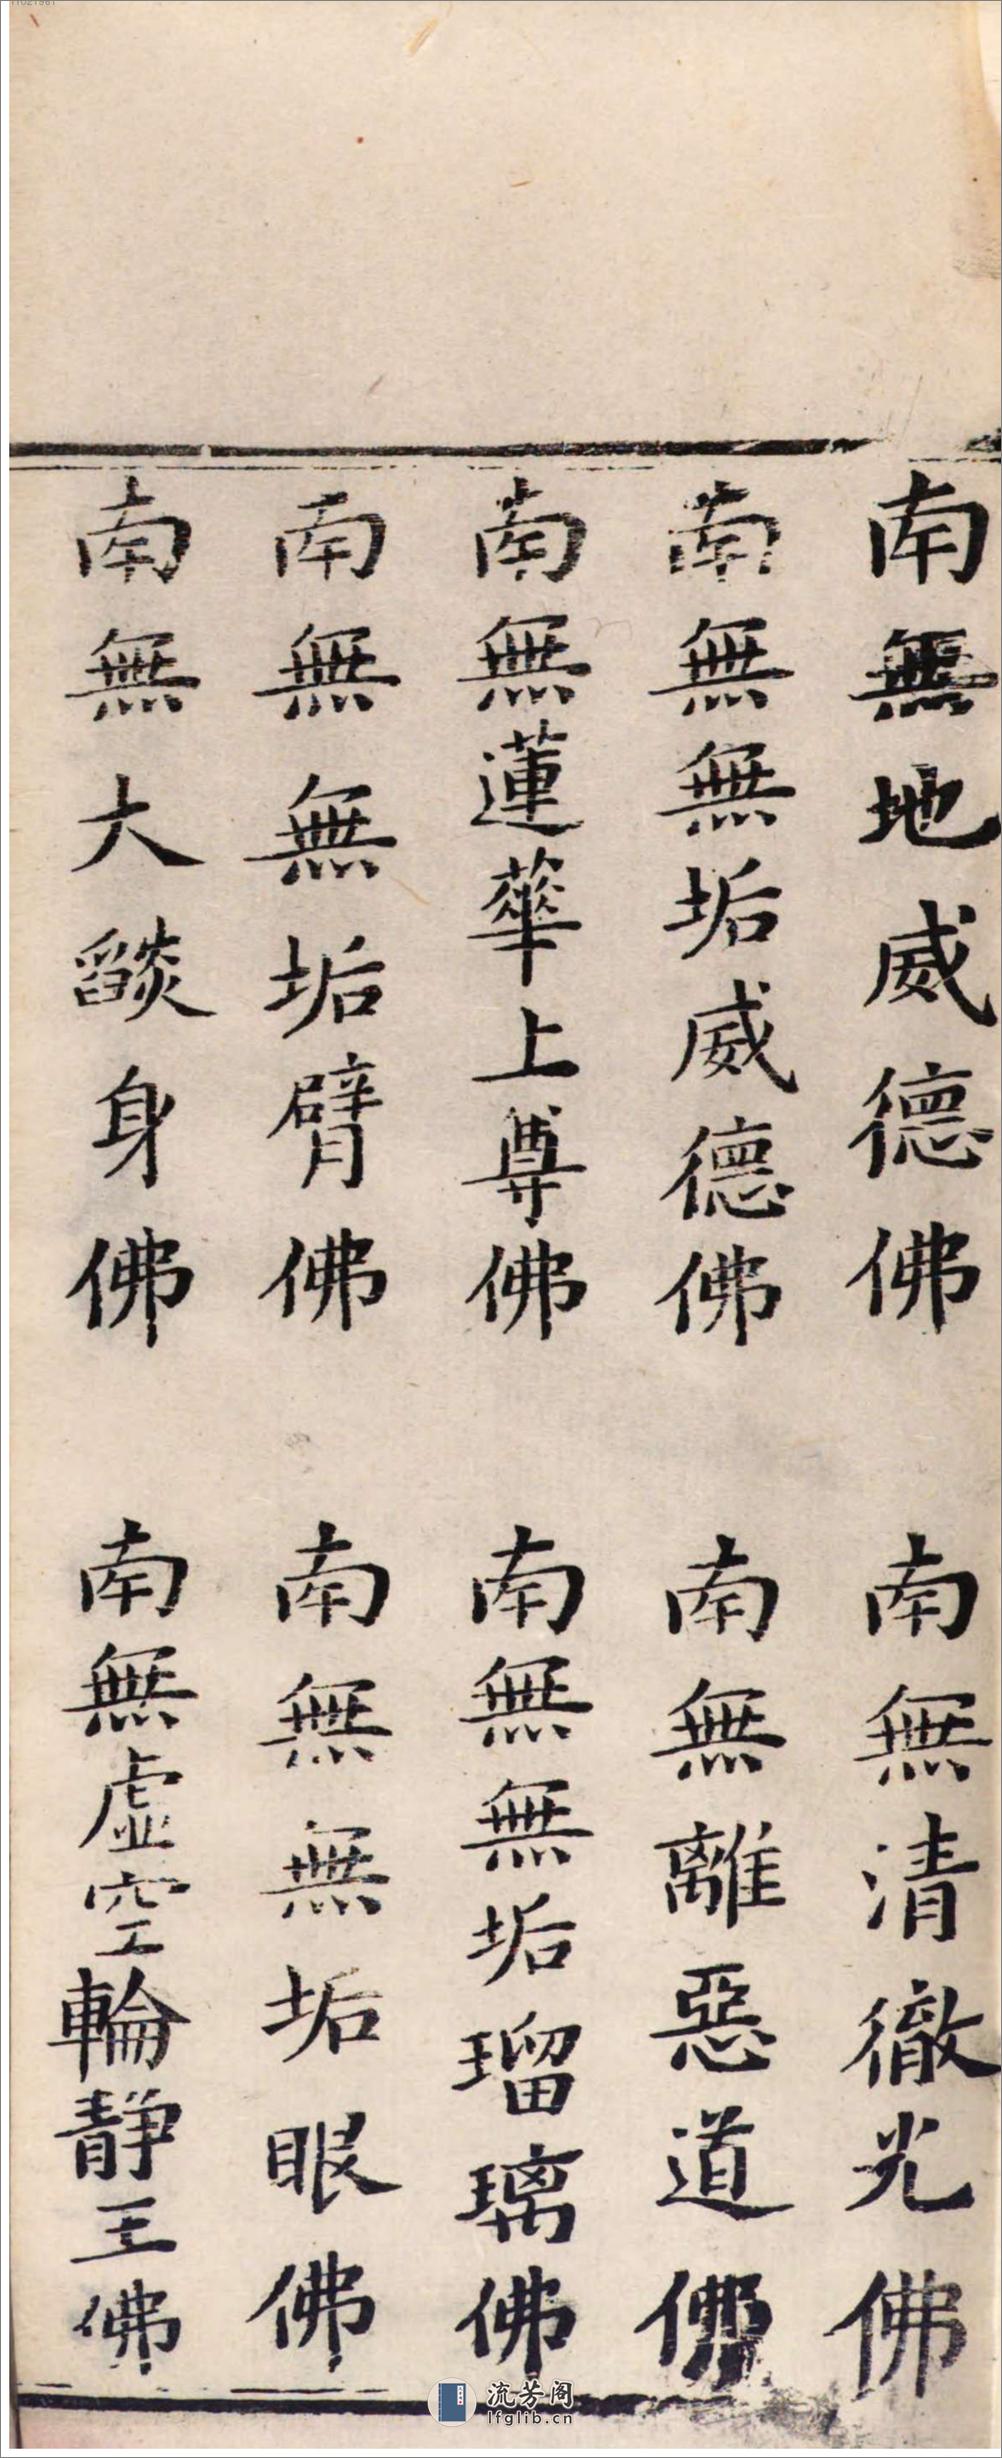 南無地威德佛
南無清徹光佛
南無無垢威德佛
南無離惡道佛
南無蓮華上尊佛
南無無垢瑠璃佛
南無無垢臂佛
南無無垢眼佛
南無大燄身佛
南無虛空輪靜王佛
流芳阁
lfglib.cn